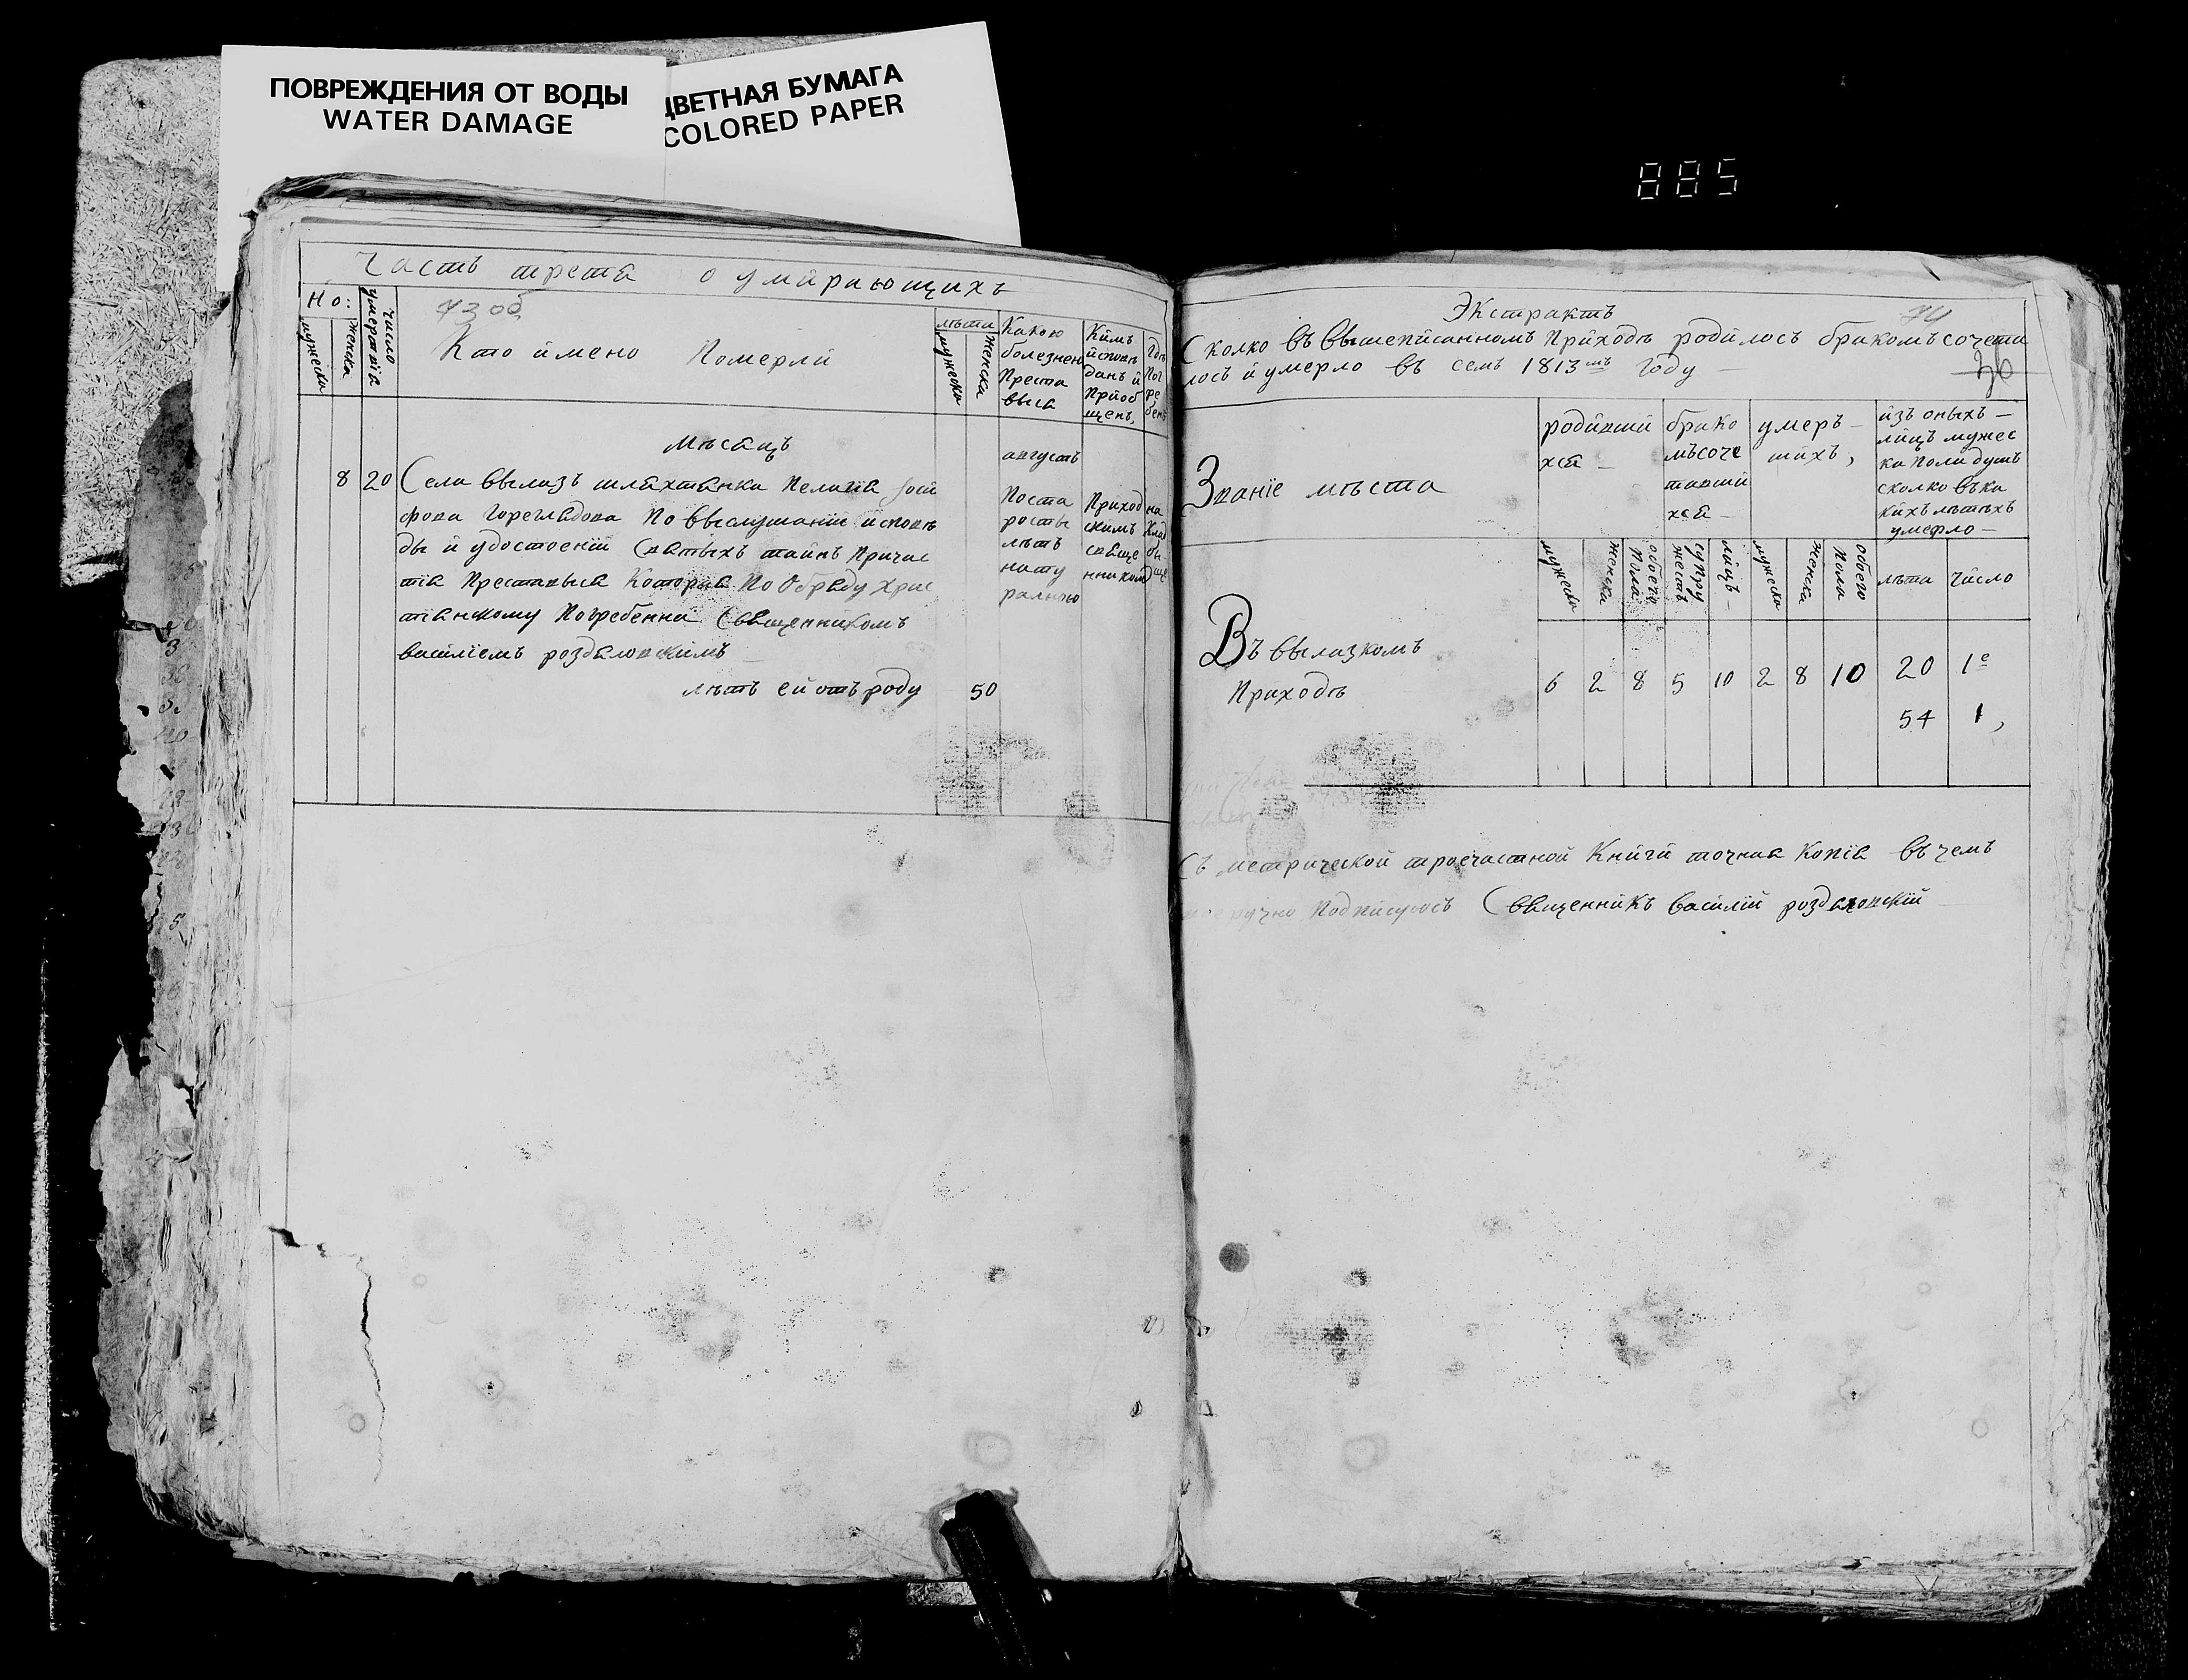 ПОВРЕЖДЕНИЯ ОТ ВОДЫ
WATER DAMAGE
ЦВЕТНАЯ БУМАГА
COLORED PAPER
885
Часть третя о умираюющихъ
73 об
Но:
мужеска
женска
число умертвія
Кто имено Померли
лѣта
мужеска
женска
Какою
болезнею
Преста
выся
Кимъ
исповѣ
данъ и
Приоб
щенъ,
Гдѣ
Пог
ре
бенъ
Мѣсацъ
августъ
8 20 Села Вылазъ шляхтянка Пелагія
фова Горегладова По выслушаніи исповѣ
ды и удостоеніи Святыхъ тайнъ Причас
тія Преставыся Которая По Обряду Хрис
тіанскому Погребенна Священникомъ
Василіемъ роздаловскимъ
лѣтъ ей отъ роду 50
Поста
росты
лѣтъ
нату
рально
Приход
скимъ
свяще
нникомъ
на
Клад
би
ще
74
Экстрактъ
Сколко въ вышеписанномъ Приходѣ родилось бракомъ сочета
лось и умерло въ семъ 1813мъ году
Званіе мѣста
родивши
хся
брако
мъ соче
тавши
хся
умерь
шихъ,
изъ оныхъ
лицъ мужес
ка пола душъ
сколко въ ка
кихъ лѣтѣхъ
умерло
мужеска
женска
обоего Пола
супру жествъ
лицъ
мужеска
женска
обоего Пола
лѣта
число
Въ вылазкомъ
Приходѣ
6 2 8 5 10 2 8 10 20 1е
54 1,
Съ метрической троечастной Книги точная Копія въ чемъ
Подписуюсь Священникъ Василій роздаловскій